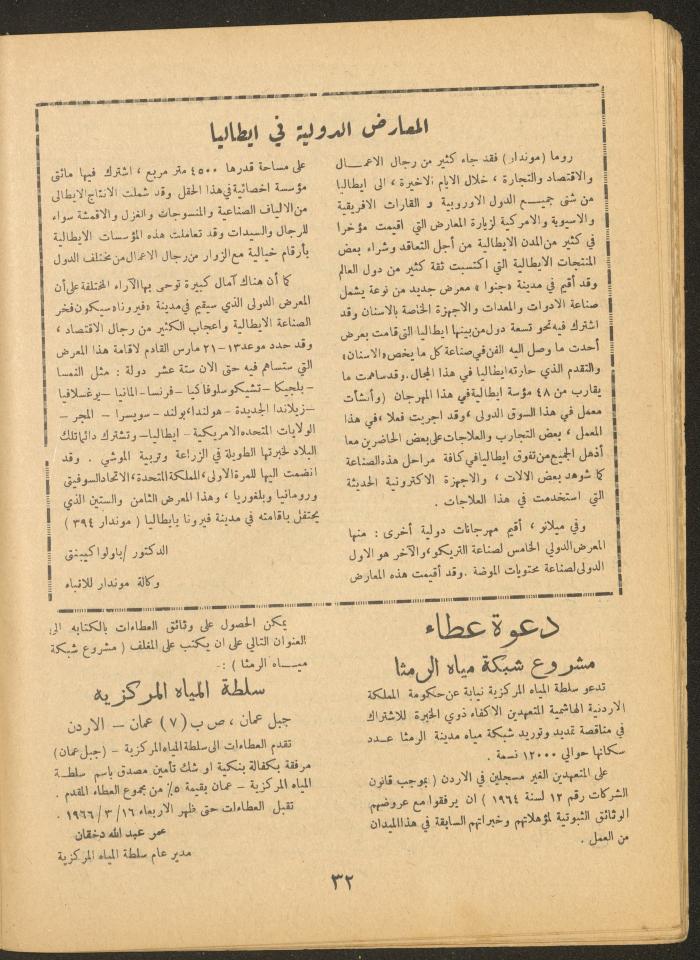 المعارض الدولية في ايطاليا
روما (موندار) فقد جاء كثير من رجال الاعمـــال
والاقتصاد والتجارة ، خلال الايام الاخيرة ، الى ايطاليا
من شتى جميـــع الدول الاوروبية و القارات الافريقية
والاسيوية والامركية لزيارة المعارض التي اقيمت مؤخرا
في كثير من المدن الايطالية من أجل التعاقد وشراء بعض
المنتجات الايطالية التي اكتسبت ثقة كثير من دول العالم
وقد أقيم في مدينة «جنوا» معرض جديد من نوعة يشمل
صناعة الادوات والمعدات والاجهزة الخاصة بالاسنان وقد
اشترك فيه نحو تسعة دول من بينها ايطاليا التي قامت بعرض
أحدث ما وصل اليه الفن في صناعة كل ما يخص «الاسنان»
والتقدم الذي حازته ايطاليا في هذا المجال . وقد ساهمت ما
يقارب من ٤٨ مؤسة ايطالية في هذا المهرجان (وأنشأت
معمل في هذا السوق الدولى ، وقد اجريت فعلا ، في هذا
المعمل ، بعض التجارب والعلاجات على بعض الحاضرين مما
أذهل الجميع من تفوق ايطاليا في كافة مراحل هذه الصناعة
كما شوهد بعض الالات ، والاجهزة الاكترونية الحديثة
التي استخدمت في هذا العلاجات .
وفي ميلانو ، أقيم مهرجانات دولية أخرى : منها
المعرض الدولي الخامس لصناعة التريكو ، والآخر هو الاول
الدولى لصناعة محتويات الموضة . وقد أقيمت هذه المعارض
على مساحة قدرها ٤٥٠٠ متر مربع ، اشترك فيها مائتى
مؤسسة اخصائية في هذا الحقل وقد شملت الانتاج الايطالى
من الالياف الصناعية والمنسوجات والغزل والاقمشة سواء
للرجال والسيدات وقد تعاملت هذه المؤسسات الايطالية
بأرقام خيالية مع الزوار من رجال الاعمال من مختلف الدول
كما أن هناك آمال كبيرة توحى بها الآراء المختلفة على أن
المعرض الدولى الذي سيقيم في مدينة «فيرونا» سيكون فخر
الصناعة الايطالية واعجاب الكثير من رجال الاقتصاد ،
وقد حدد موعد ١٣–٢١ مارس القادم لاقامة هذا المعرض
التي ستساهم فيه حتى الان ستة عشر دولة : مثل النمسا
– بلجيكا – تشيكوسلوفاكيا – فرنسا – المانيا – يوغسلافيا
– زيلاندا الجديدة – هولندا ، بولند – سويسرا – المجر –
الولايات المتحده الامريكية – ايطاليا – وتشترك دائما تلك
البلاد لخبرتها الطويلة في الزراعة وتربية الموشي . وقد
انضمت اليها للمرة الاولى ، المملكة المتحدة ، الاتحاد السوفيتى
ورومانيا وبلغوريا ، وهذا المعرض الثامن والستين الذي
يحتفل باقامته في مدينة فيرونا بايطاليا ( موندار ٣٩٤ )
الدكتور / باولوا كيبنتى
وكالة موندار للانباء
دعوة عطاء
مشروع شبكة مياه الرمثا
تدعو سلطة المياه المركزية نيابة عن حكومة المملكة
الاردنية الهاشمية المتعهدين الاكفاء ذوي الخبرة للاشتراك
في مناقصة تمديد وتوريد شبكة مياه مدينة الرمثا عـــدد
سكانها حوالي ١٢٠٠٠ نسمة .
على المتعهدين الغير مسجلين في الاردن (بموجب قانون
الشركات رقم ١٢ لسنة ١٩٦٤ ) ان يرفقوا مع عروضهم
الوثائق الثبوتية لمؤهلاتهم وخبراتهم السابقة في هذا الميدان
من العمل .
يمكن الحصول على وثائق العطاءات بالكتابه الى
العنوان التالي على ان يكتب على المغلف ( مشروع شبكة
ميـــاه الرمثا ) :-
سلطة المياه المركزيه
جبل عمان ، ص ب (٧) عمان – الاردن
تقدم العطاءات الى سلطة المياه المركزية – (جبل عمان)
مرفقة بكفالة بنكية او شك تأمين مصدق باسم سلطـة
المياه المركزية – عمان بقيمة ٥٪ من مجموع العطاء المقدم .
تقبل العطاءات حتى ظهر الاربعاء ١٦ / ٣ / ١٩٦٦ .
عمر عبد الله دخقان
مدير عام سلطة المياه المركزية
٣٢